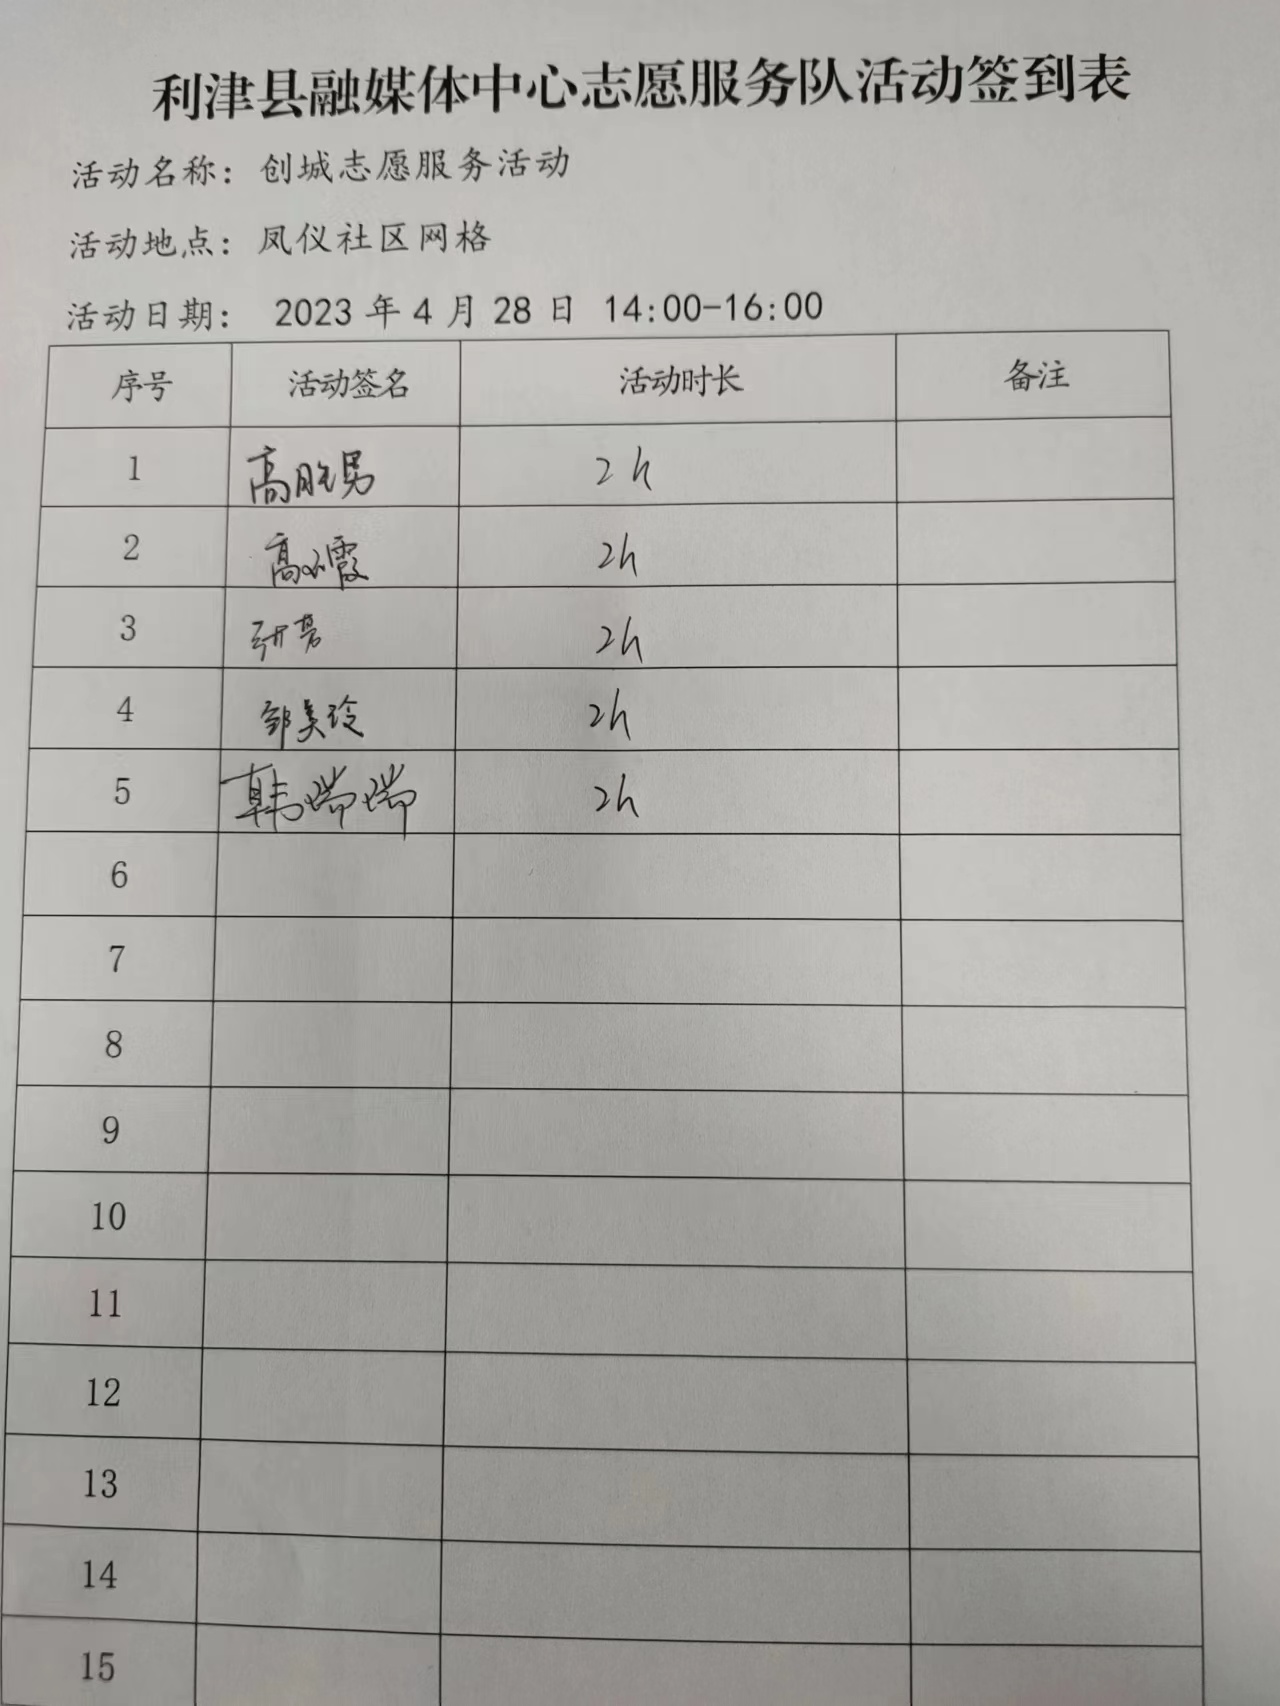 利津县融媒体中心志愿服务队活动签到表
活动名称：创城志愿服务活动
活动地点：凤仪社区网格
活动日期： 2023 年 4 月 28 日 14:00-16:00
序号 活动签名 活动时长 备注
1 高胜男 2h
2 高小霞 2h
3 张芳 2h
4 邹美玲 2h
5 韩瑞瑞 2h
6
7
8
9
10
11
12
13
14
15